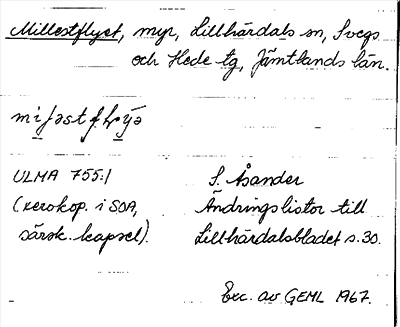 Millestflyet, myr, Lillhärdals sn, Svegs
och Hede tg, Jämtlands län.
ULMA 755:1
(xerokop. i SOA,
särsk. kapsel).
S. Åsander
Ändringslistor till
Lillhärdalsbladet s. 30.
Exc. av GEML 1967.